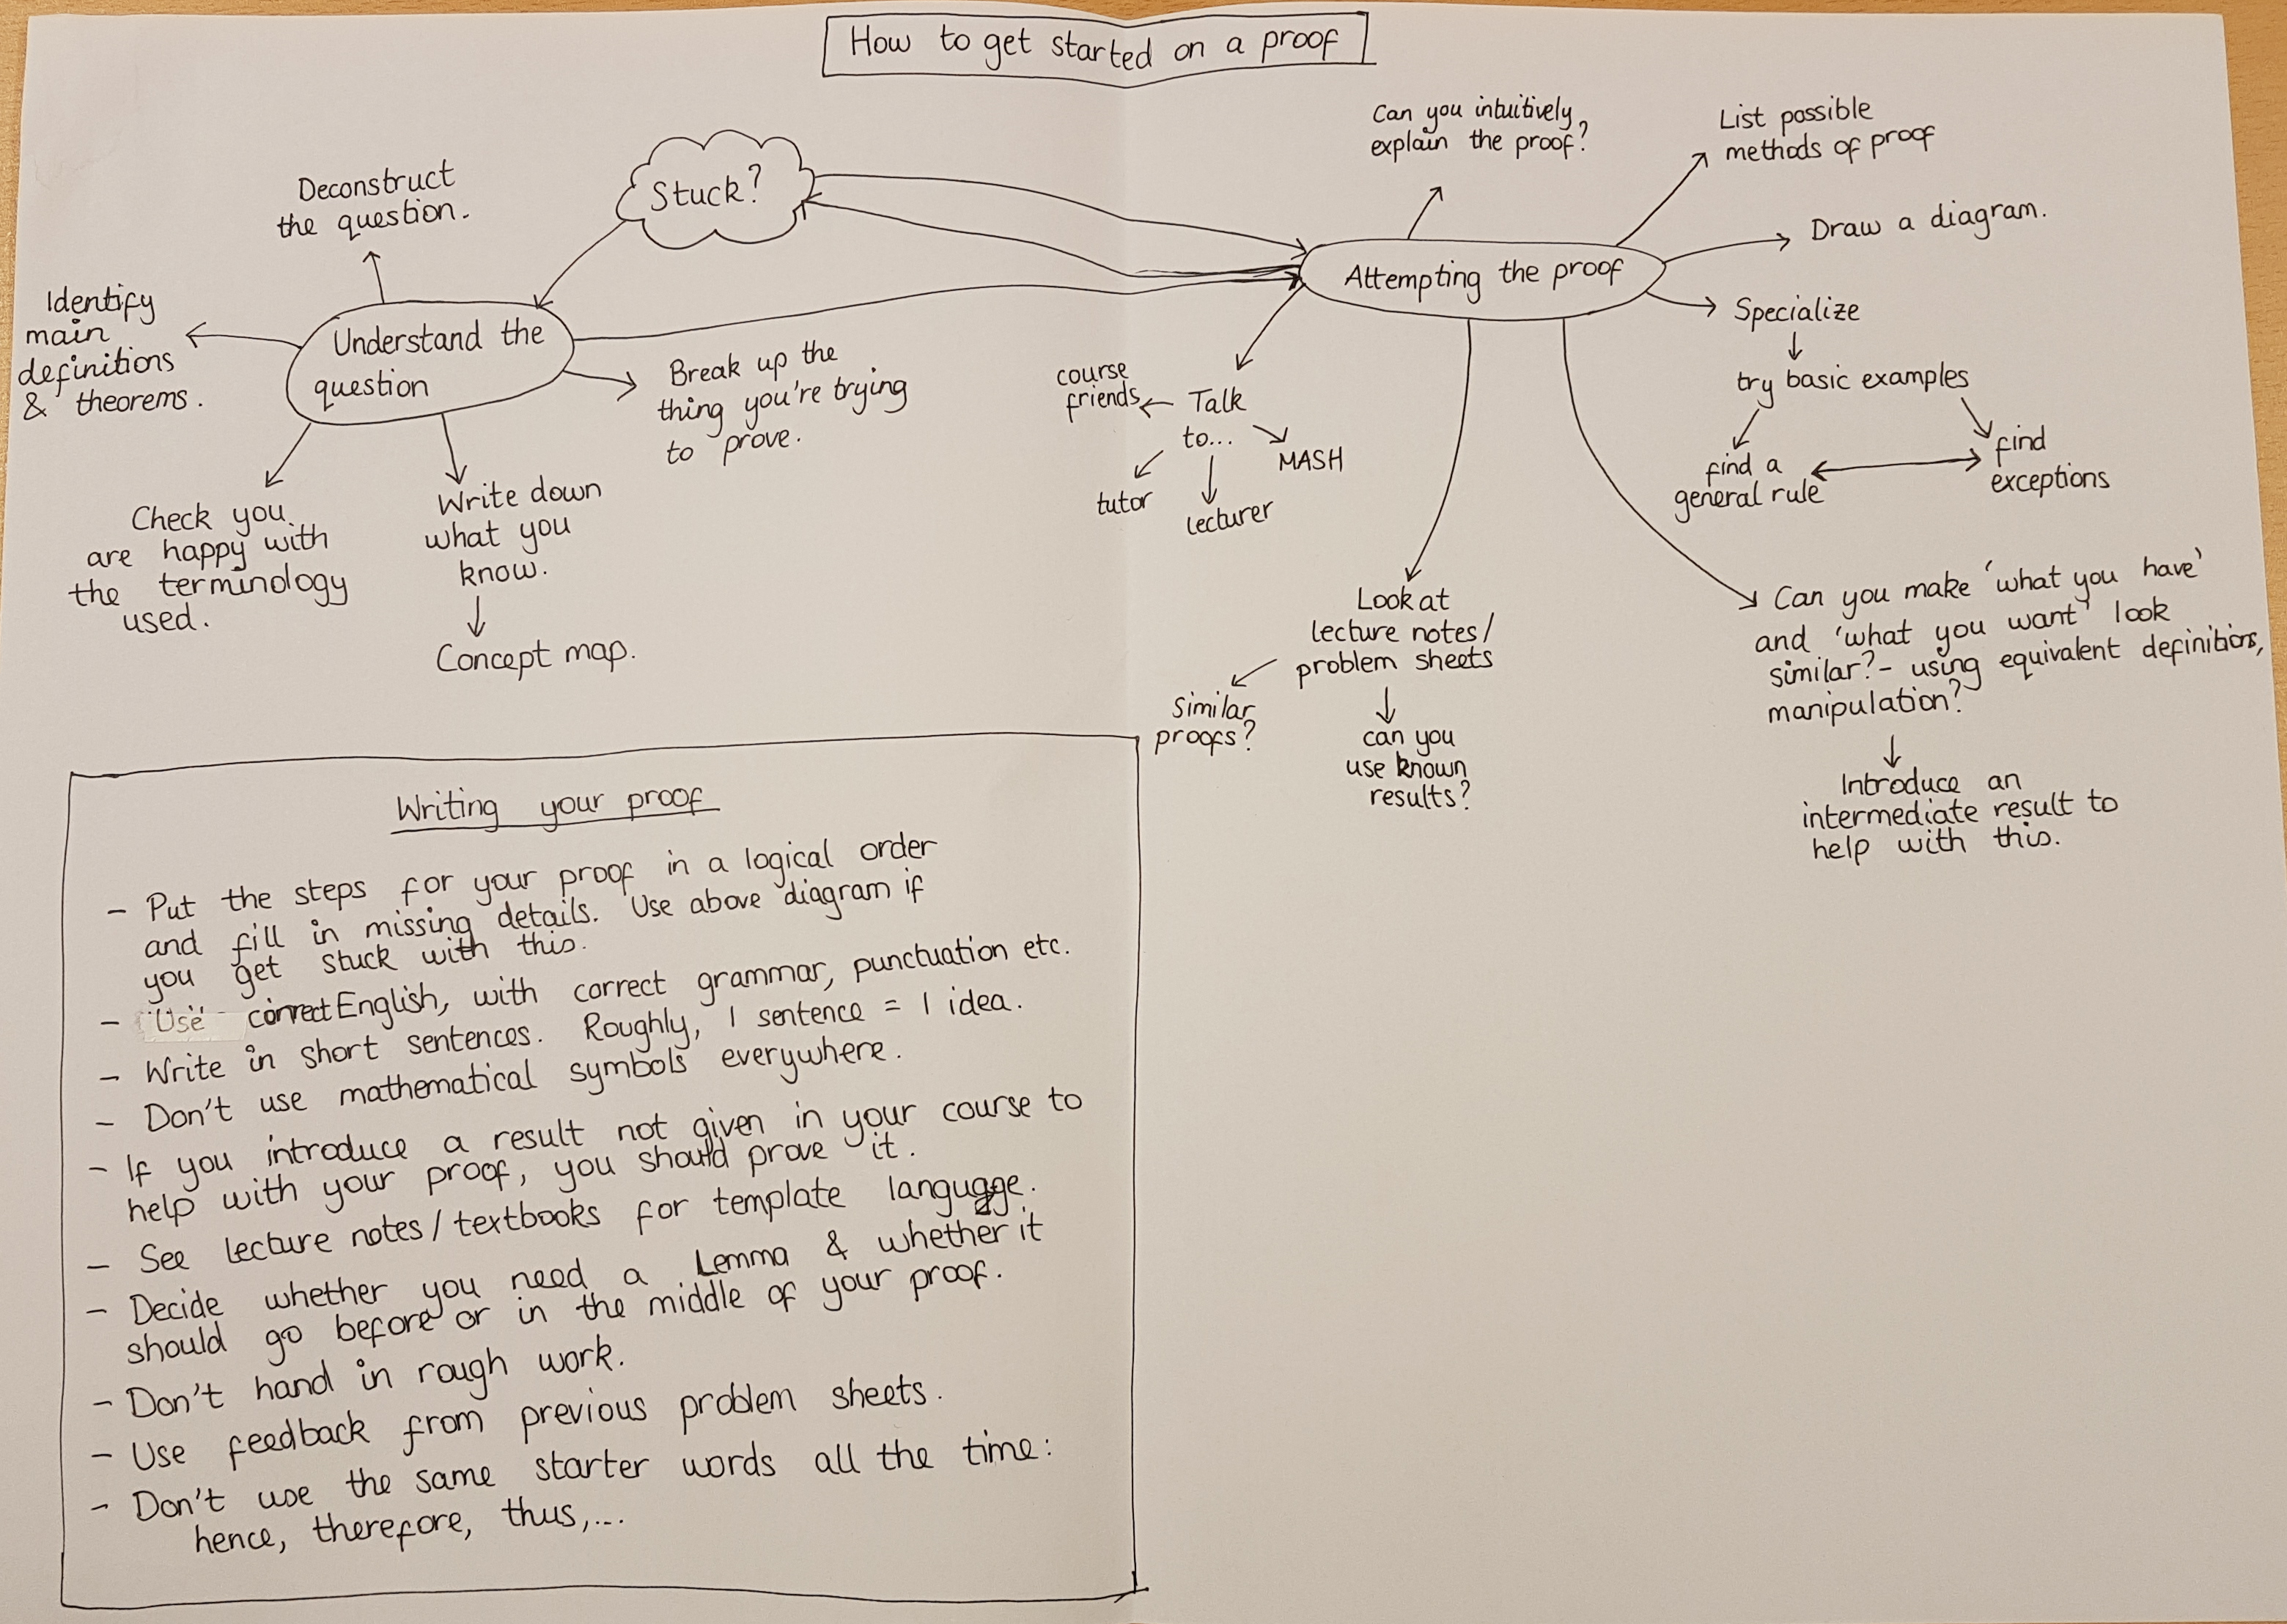 How to get started on a proof
Stuck?
Deconstruct
the question.
Identify
main
definitions
& theorems.
Understand the
question
Break up the
thing you're trying
to prove.
Check you
are happy with
the terminology
used.
Write down
what you
know.
Concept map.
Can you intuitively
explain the proof?
List possible
methods of proof
Draw a diagram.
Attempting the proof
Specialize
try basic examples
find a
general rule
find
exceptions
course
friends
Talk
to...
MASH
tutor
lecturer
Look at
lecture notes/
problem sheets
Similar
proofs?
can you
use known
results?
Can you make 'what you have'
and 'what you want' look
similar? - using equivalent definitions,
manipulation?
Introduce an
intermediate result to
help with this.
Writing your proof
- Put the steps for your proof in a logical order
and fill in missing details. Use above diagram if
you get stuck with this.
- Use correct English, with correct grammar, punctuation etc.
- Write in short sentences. Roughly, 1 sentence = 1 idea.
- Don't use mathematical symbols everywhere.
- If you introduce a result not given in your course to
help with your proof, you should prove it.
- See lecture notes/textbooks for template language.
- Decide whether you need a Lemma & whether it
should go before or in the middle of your proof.
- Don't hand in rough work.
- Use feedback from previous problem sheets.
- Don't use the same starter words all the time:
hence, therefore, thus,...